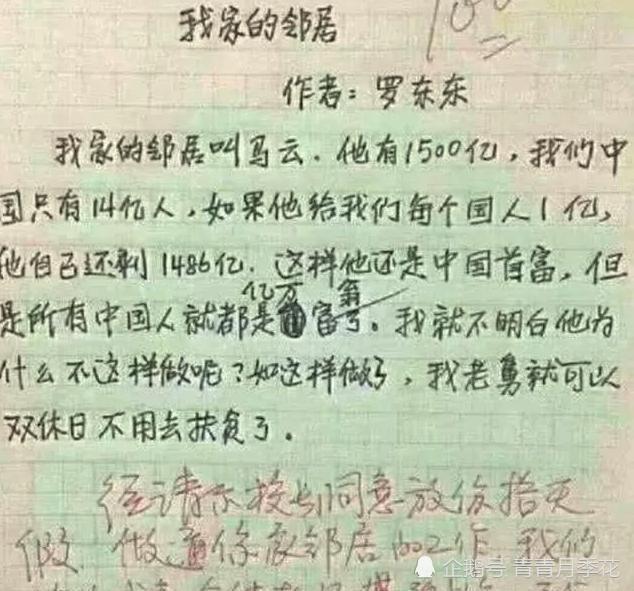 我家的邻居
100
作者：罗东东
我家的邻居叫马云. 他有1500亿，我们中
国只有14亿人，如果他给我们每个国人1亿，
他自己还剩1486亿. 这样他还是中国首富，但
亿万 翁
是所有中国人就都是富了。我就不明白他为
什么不这样做呢？如这样做了，我老舅就可以
双休日不用去扶贫了。
经请示校长同意放你拾天
假 做通你家邻居的工作 我们
企鹅号 青青月季花